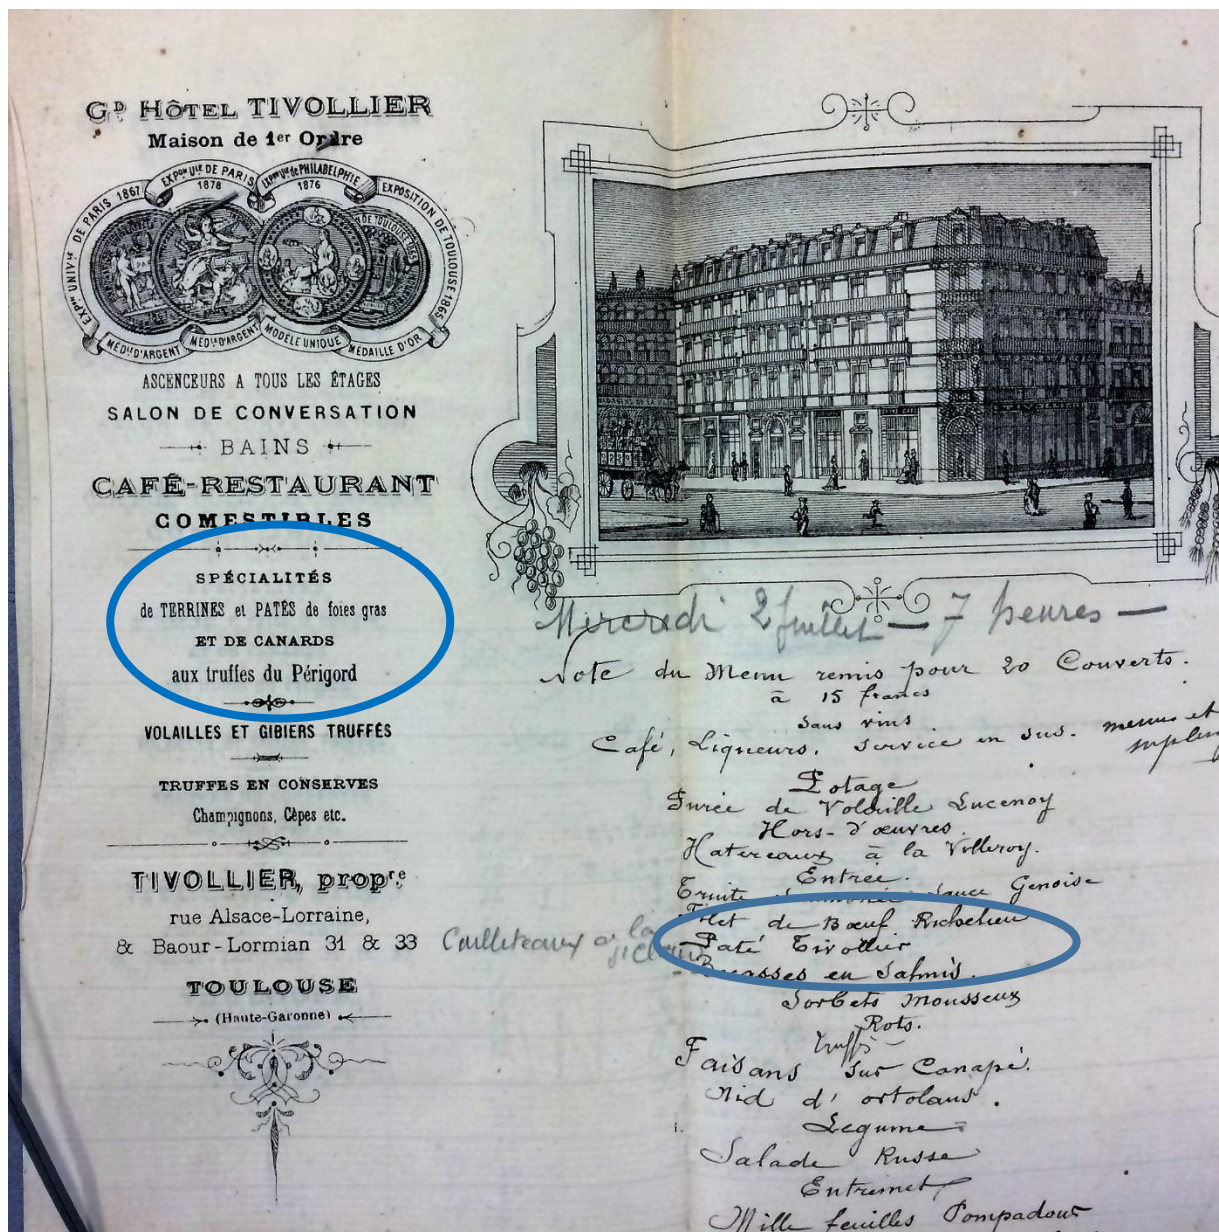 GD HÔTEL TIVOLLIER
Maison de 1er Ordre
EXPon UNIVlle DE PARIS 1867
EXPon Ulle DE PARIS 1878
EXPon Ulle de PHILADELPHIE 1876
EXPOSITION DE TOULOUSE 1865
MÉDlle D'ARGENT
MÉDlle D'ARGENT
MODÈLE UNIQUE
MÉDAILLE D'OR
ASCENCEURS A TOUS LES ÉTAGES
SALON DE CONVERSATION
BAINS
CAFÉ-RESTAURANT
COMESTIBLES
SPÉCIALITÉS
de TERRINES et PATÉS de foies gras
ET DE CANARDS
aux truffes du Périgord
VOLAILLES ET GIBIERS TRUFFÉS
TRUFFES EN CONSERVES
Champignons, Cèpes etc.
TIVOLLIER, propre
rue Alsace-Lorraine,
& Baour-Lormian 31 & 33
TOULOUSE
(Haute-Garonne)
Mercredi 2 Juillet — 7 heures —
Note du Menu remis pour 20 Couverts.
à 15 francs
Sans vins
Café, Liqueurs, Service en sus. menus et
Potage
Purée de Volaille Lucenoy
Hors-d'œuvres.
Hatereaux à la Villeroy.
Entrée.
Truite Saumonée Sauce Genoise
Filet de Bœuf Richelieu
Cailleteaux à la
Paté Tivollier
Becasses en Salmis.
Sorbets Mousseux
Rots.
truffés
Faisans Sur Canapé.
Nid d'ortolans.
Legume
Salade Russe
Entremet
Mille feuilles Pompadour